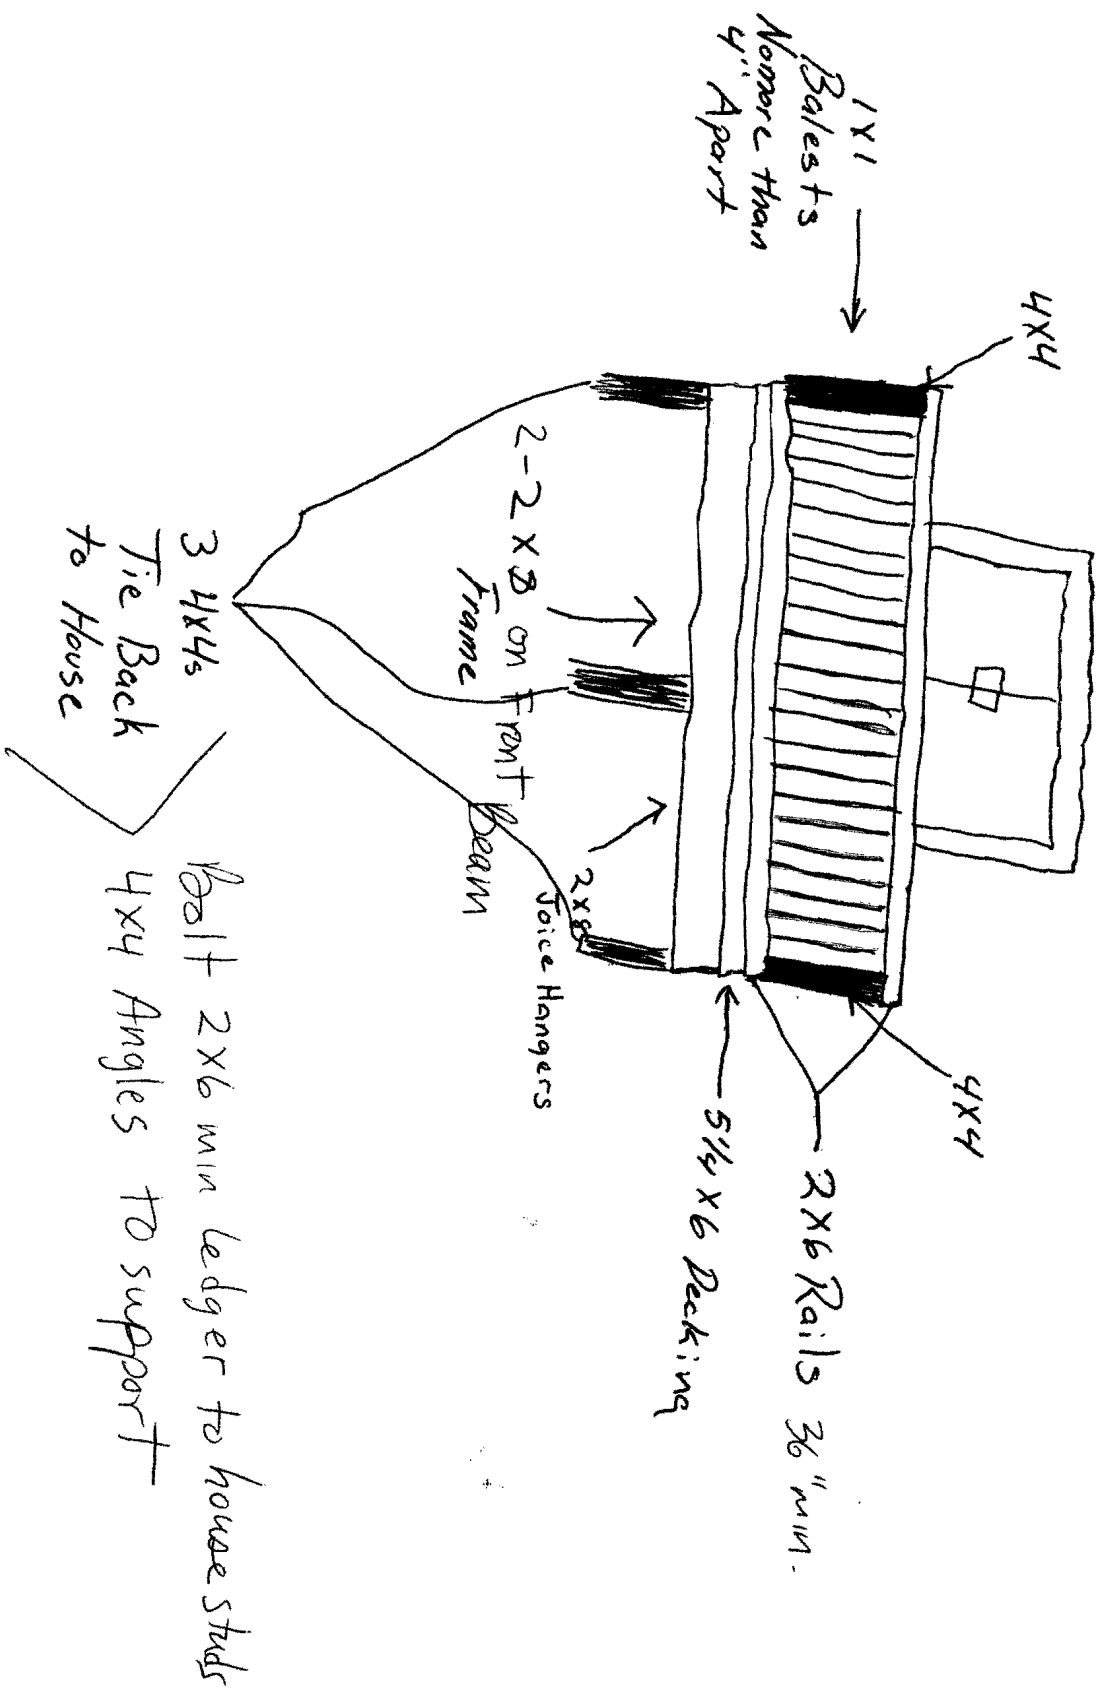 4x4
1x1
Balests
Nomore than
4" Apart
4x4
2x6 Rails 36" min.
5 1/4 x 6 Decking
2-2x8 on Front Beam
Frame
2x8
Joice Hangers
3 4x4s
Tie Back
to House
Bolt 2x6 min Ledger to house studs
4x4 Angles to support